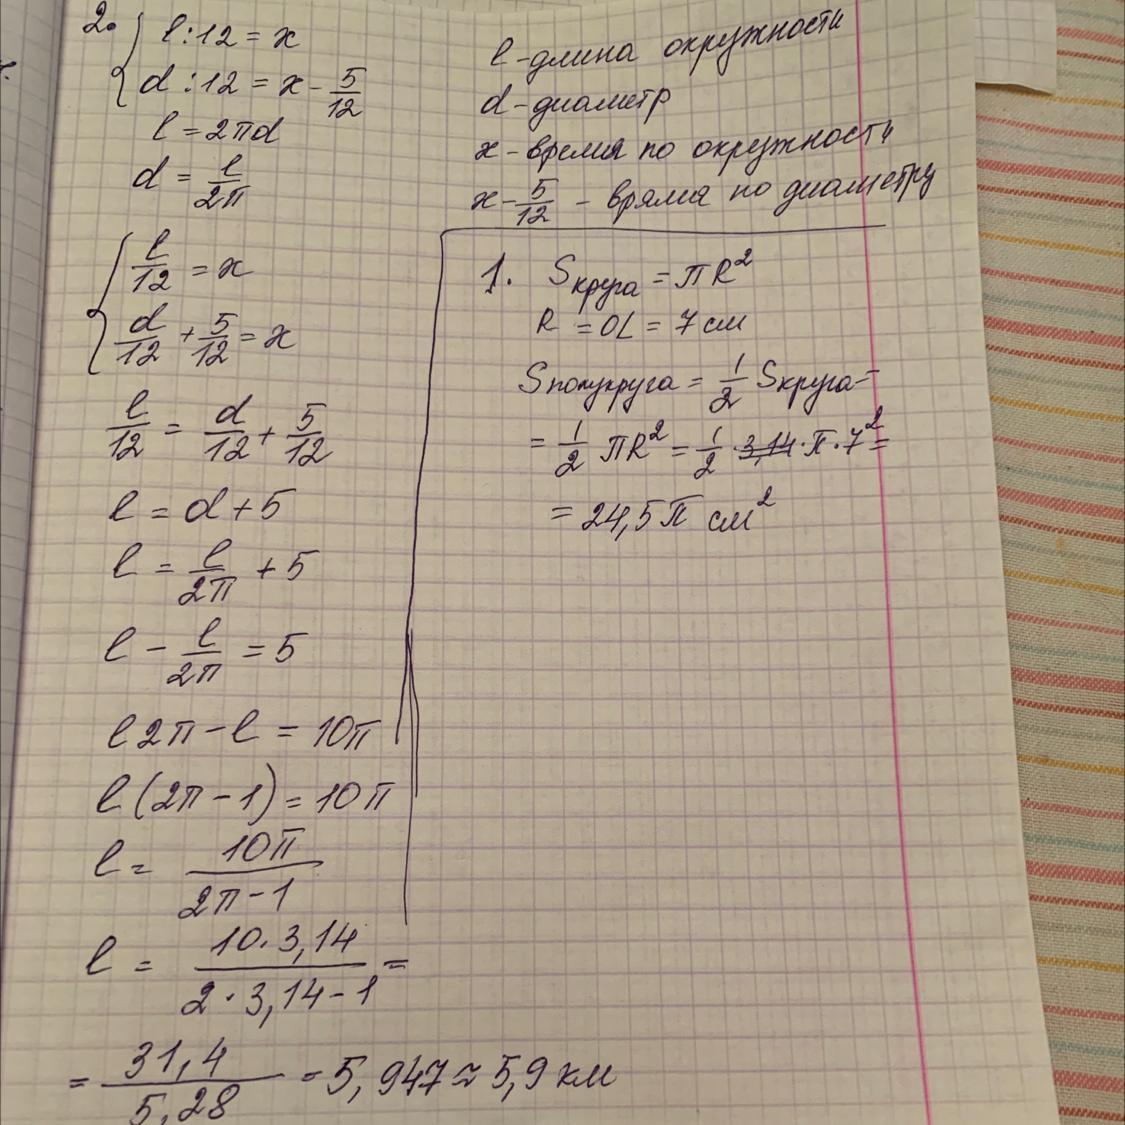 2. l : 12 = x
d : 12 = x - 5/12
l = 2πd
d = l/2π
l/12 = x
d/12 + 5/12 = x
l/12 = d/12 + 5/12
l = d + 5
l = l/2π + 5
l - l/2π = 5
l2π - l = 10π
l(2π - 1) = 10π
l = 10π/2π - 1
l = 10·3,14/2·3,14 - 1 =
= 31,4/5,28 = 5,947 ≈ 5,9 км
l - длина окружности
d - диаметр
x - время по окружности
x - 5/12 - время по диаметру
1. Sкруга = πR²
R = OL = 7 см
Sполукруга = 1/2 Sкруга =
= 1/2 πR² = 1/2 · 3,14 · π · 7² =
= 24,5π см²